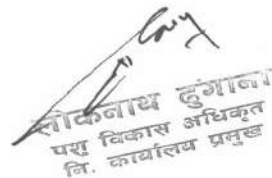 लोकनाथ ढुंगाना
पशु विकास अधिकृत
नि. कार्यालय प्रमुख